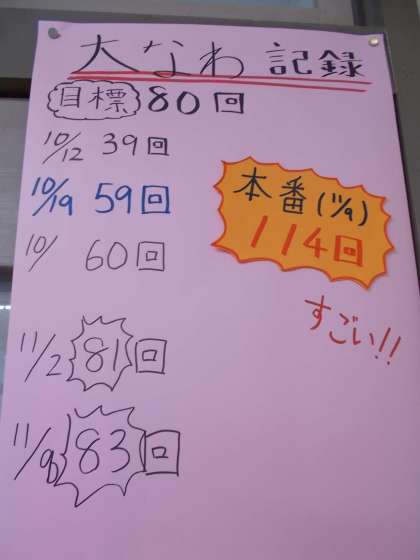 大なわ 記録
目標 80回
10/12 39回
10/19 59回
10/ 60回
11/2 81回
83回
本番(11/9)
114回
すごい!!